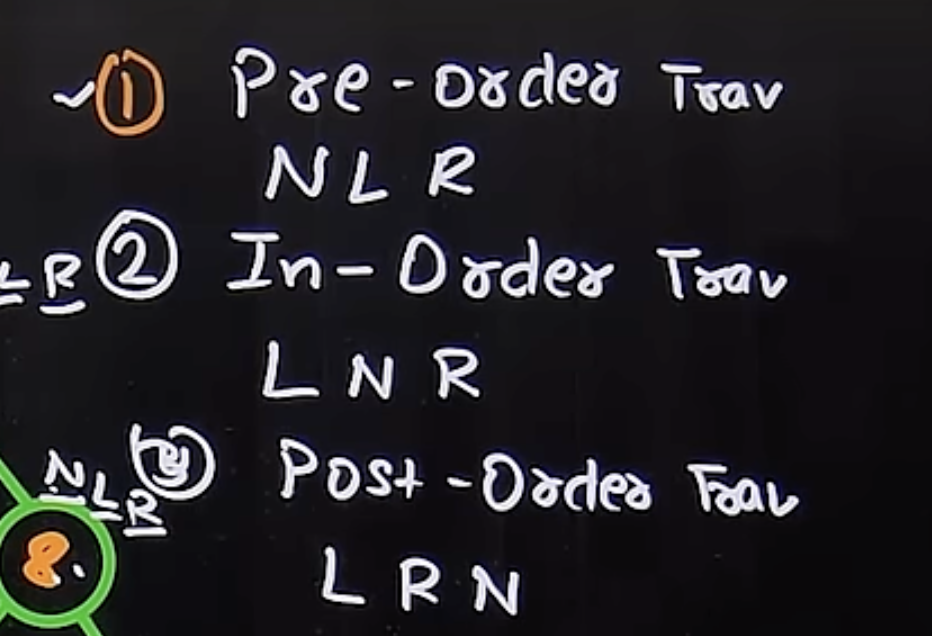 1 Pre-order Trav
N L R
L R 2 In-Order Trav
L N R
N L R 3 Post-Order Trav
8.
L R N